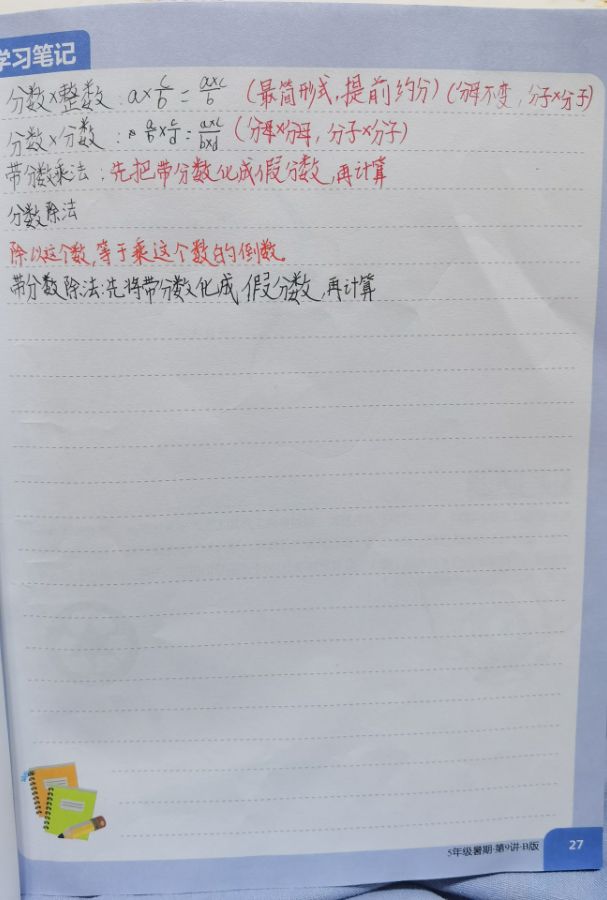 学习笔记
分数×整数：a×c/b=a×c/b （最简形式，提前约分）（分母不变，分子×分子）
分数×分数：a/b×c/d=a×c/b×d（分母×分母，分子×分子）
带分数乘法：先把带分数化成假分数，再计算
分数除法
除以这个数，等于乘这个数的倒数。
带分数除法：先将带分数化成假分数，再计算
5年级暑期·第9讲·B版
27